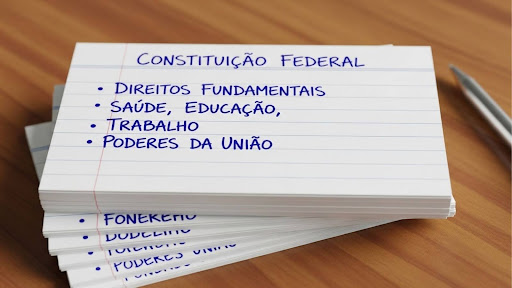 CONSTITUIÇÃO FEDERAL
• DIREITOS FUNDAMENTAIS
• SAÚDE, EDUCAÇÃO,
• TRABALHO
• PODERES DA UNIÃO
• PODERES UNIÃO